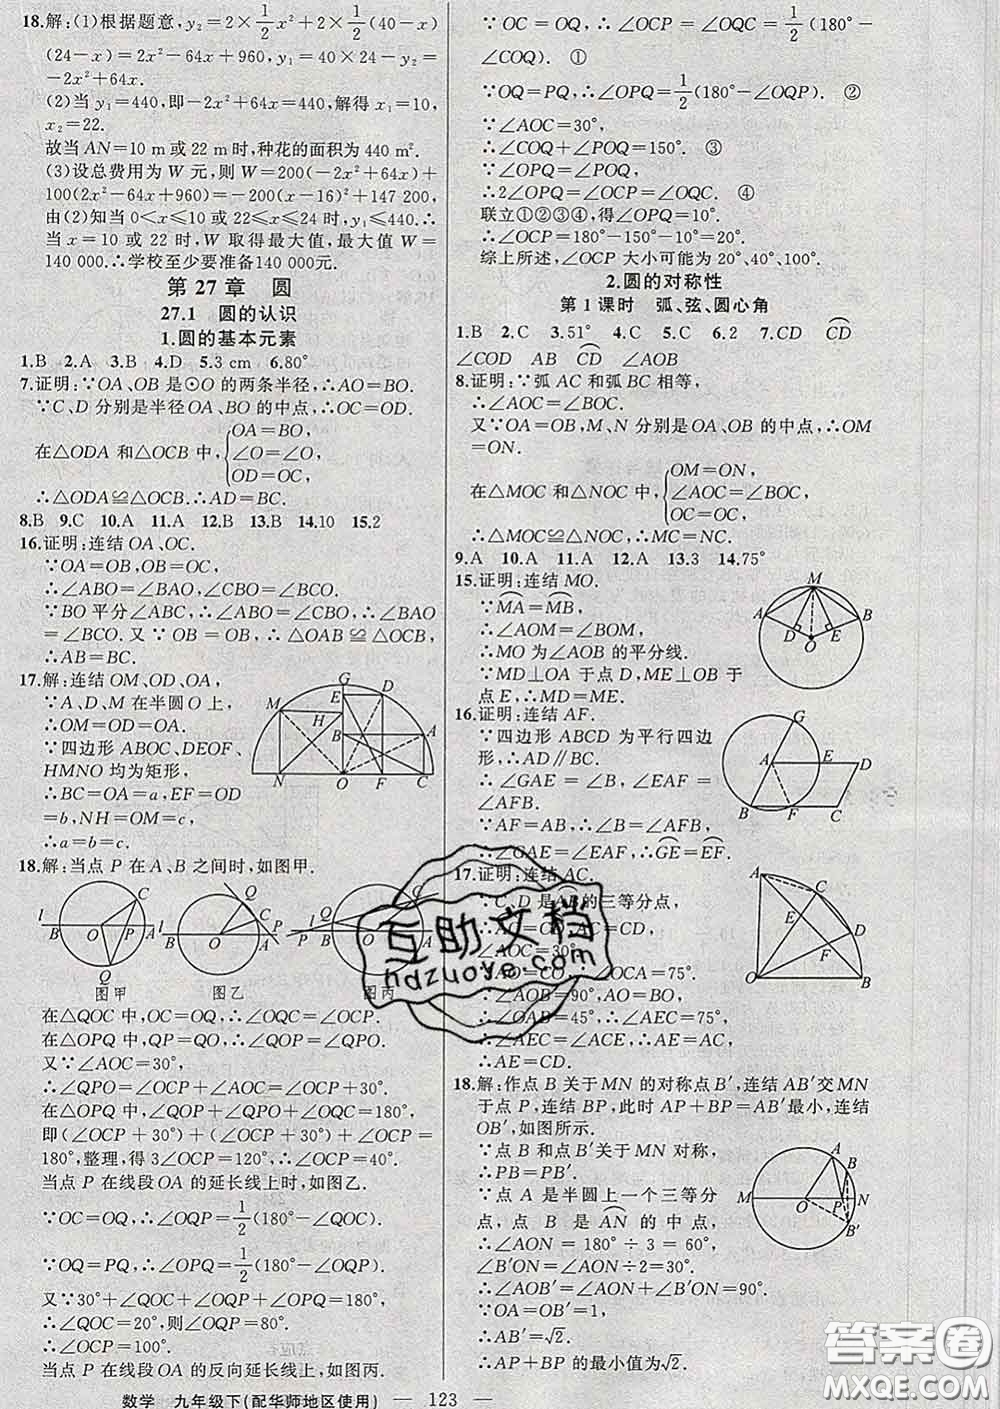 18.解:(1)根据题意,y₂=2×1/2x²+2×1/2(40-x)
(24-x)=2x²-64x+960,y₁=40×24-y₂=
-2x²+64x.
(2)当y₁=440,即-2x²+64x=440,解得x₁=10,
x₂=22.
故当AN=10 m或22 m时,种花的面积为440 m².
(3)设总费用为W元,则W=200(-2x²+64x)+
100(2x²-64x+960)=-200(x-16)²+147 200,
由(2)知当0<x≤10或22≤x≤24时,y₁≤440.∴
当x=10或22时,W取得最大值,最大值W=
140 000.∴学校至少要准备140 000元.
第27章 圆
27.1 圆的认识
1.圆的基本元素
1.B 2.A 3.B 4.D 5.3 cm 6.80°
7.证明:∵OA、OB是⊙O的两条半径,∴AO=BO.
∵C、D分别是半径OA、BO的中点,∴OC=OD.
在△ODA和△OCB中,{OA=BO,
∠O=∠O,
OD=OC,
∴△ODA≌△OCB.∴AD=BC.
8.B 9.C 10.A 11.A 12.B 13.B 14.10 15.2
16.证明:连结OA、OC.
∵OA=OB,OB=OC,
∴∠ABO=∠BAO,∠CBO=∠BCO.
∵BO平分∠ABC,∴∠ABO=∠CBO,∴∠BAO
=∠BCO.又∵OB=OB,∴△OAB≌△OCB,
∴AB=BC.
17.解:连结OM、OD、OA,
∵A、D、M在半圆O上,
∴OM=OD=OA.
∵四边形ABOC、DEOF、
HMNO均为矩形,
∴BC=OA=a,EF=OD
=b,NH=OM=c,
∴a=b=c.
G
E D
M H
B A
N O F C
18.解:当点P在A、B之间时,如图甲.
l B O P A C Q
图甲
l B O A P C Q
图乙
图丙
在△QOC中,OC=OQ,∴∠OQC=∠OCP.
在△OPQ中,QP=QO,∴∠QOP=∠QPO.
又∵∠AOC=30°,
∴∠QPO=∠OCP+∠AOC=∠OCP+30°.
在△OPQ中,∠QOP+∠QPO+∠OQC=180°,
即(∠OCP+30°)+(∠OCP+30°)+∠OCP=
180°,整理,得3∠OCP=120°,∴∠OCP=40°.
当点P在线段OA的延长线上时,如图乙.
∵OC=OQ,∴∠OQP=1/2(180°-∠QOC).
∵OQ=PQ,∴∠OPQ=1/2(180°-∠OQP).
又∵30°+∠QOC+∠OQP+∠OPQ=180°,
∴∠QOC=20°,则∠OQP=80°.
∴∠OCP=100°.
当点P在线段OA的反向延长线上时,如图丙.
∵OC=OQ,∴∠OCP=∠OQC=1/2(180°-
∠COQ). ①
∵OQ=PQ,∴∠OPQ=1/2(180°-∠OQP). ②
∵∠AOC=30°,
∴∠COQ+∠POQ=150°. ③
∵∠OPQ=∠POQ,
∴2∠OPQ=∠OCP=∠OQC. ④
联立①②③④,得∠OPQ=10°.
∴∠OCP=180°-150°-10°=20°.
综上所述,∠OCP大小可能为20°、40°、100°.
2.圆的对称性
第1课时 弧、弦、圆心角
1.B 2.C 3.51° 4.C 5.C 6.2 7.CD CD
∠COD AB CD ∠AOB
8.证明:∵弧AC和弧BC相等,
∴∠AOC=∠BOC.
又∵OA=OB,M、N分别是OA、OB的中点,∴OM
=ON.
在△MOC和△NOC中,{OM=ON,
∠AOC=∠BOC,
OC=OC,
∴△MOC≌△NOC,∴MC=NC.
9.A 10.A 11.A 12.A 13.3 14.75°
15.证明:连结MO.
∵MA=MB,
∴∠AOM=∠BOM,
∴MO为∠AOB的平分线.
∵MD⊥OA于点D,ME⊥OB于
点E,∴MD=ME.
M
A B
D E
O
16.证明:连结AF.
∵四边形ABCD为平行四边
形,∴AD∥BC.
∴∠GAE=∠B,∠EAF=
∠AFB.
∵AF=AB,∴∠AFB=∠B,
∴∠GAE=∠EAF,∴GE=EF.
G
A E D
B F C
17.证明:连结AC.
∵C、D是AB的三等分点,
∴AC=CD,
∠AOC=30°.
∠OCA=75°.
∵∠AOB=90°,AO=BO,
∴∠OAB=45°,∴∠AEC=75°,
∴∠AEC=∠ACE,∴AE=AC,
∴AE=CD.
A C
E D
F
O B
18.解:作点B关于MN的对称点B′,连结AB′交MN
于点P,连结BP,此时AP+BP=AB′最小,连结
OB′,如图所示.
∵点B和点B′关于MN对称,
∴PB=PB′.
∵点A是半圆上一个三等分
点,点B是AN的中点,
∴∠AON=180°÷3=60°,
∠B′ON=∠AON÷2=30°.
∴∠AOB′=∠AON+∠B′ON=90°.
∵OA=OB′=1,
∴AB′=√2.
∴AP+BP的最小值为√2.
A B
M O P N
B′
互助文档
hdzhuoye.com
答案圈
MXQE.COM
数学 九年级下(配华师地区使用) — 123 —